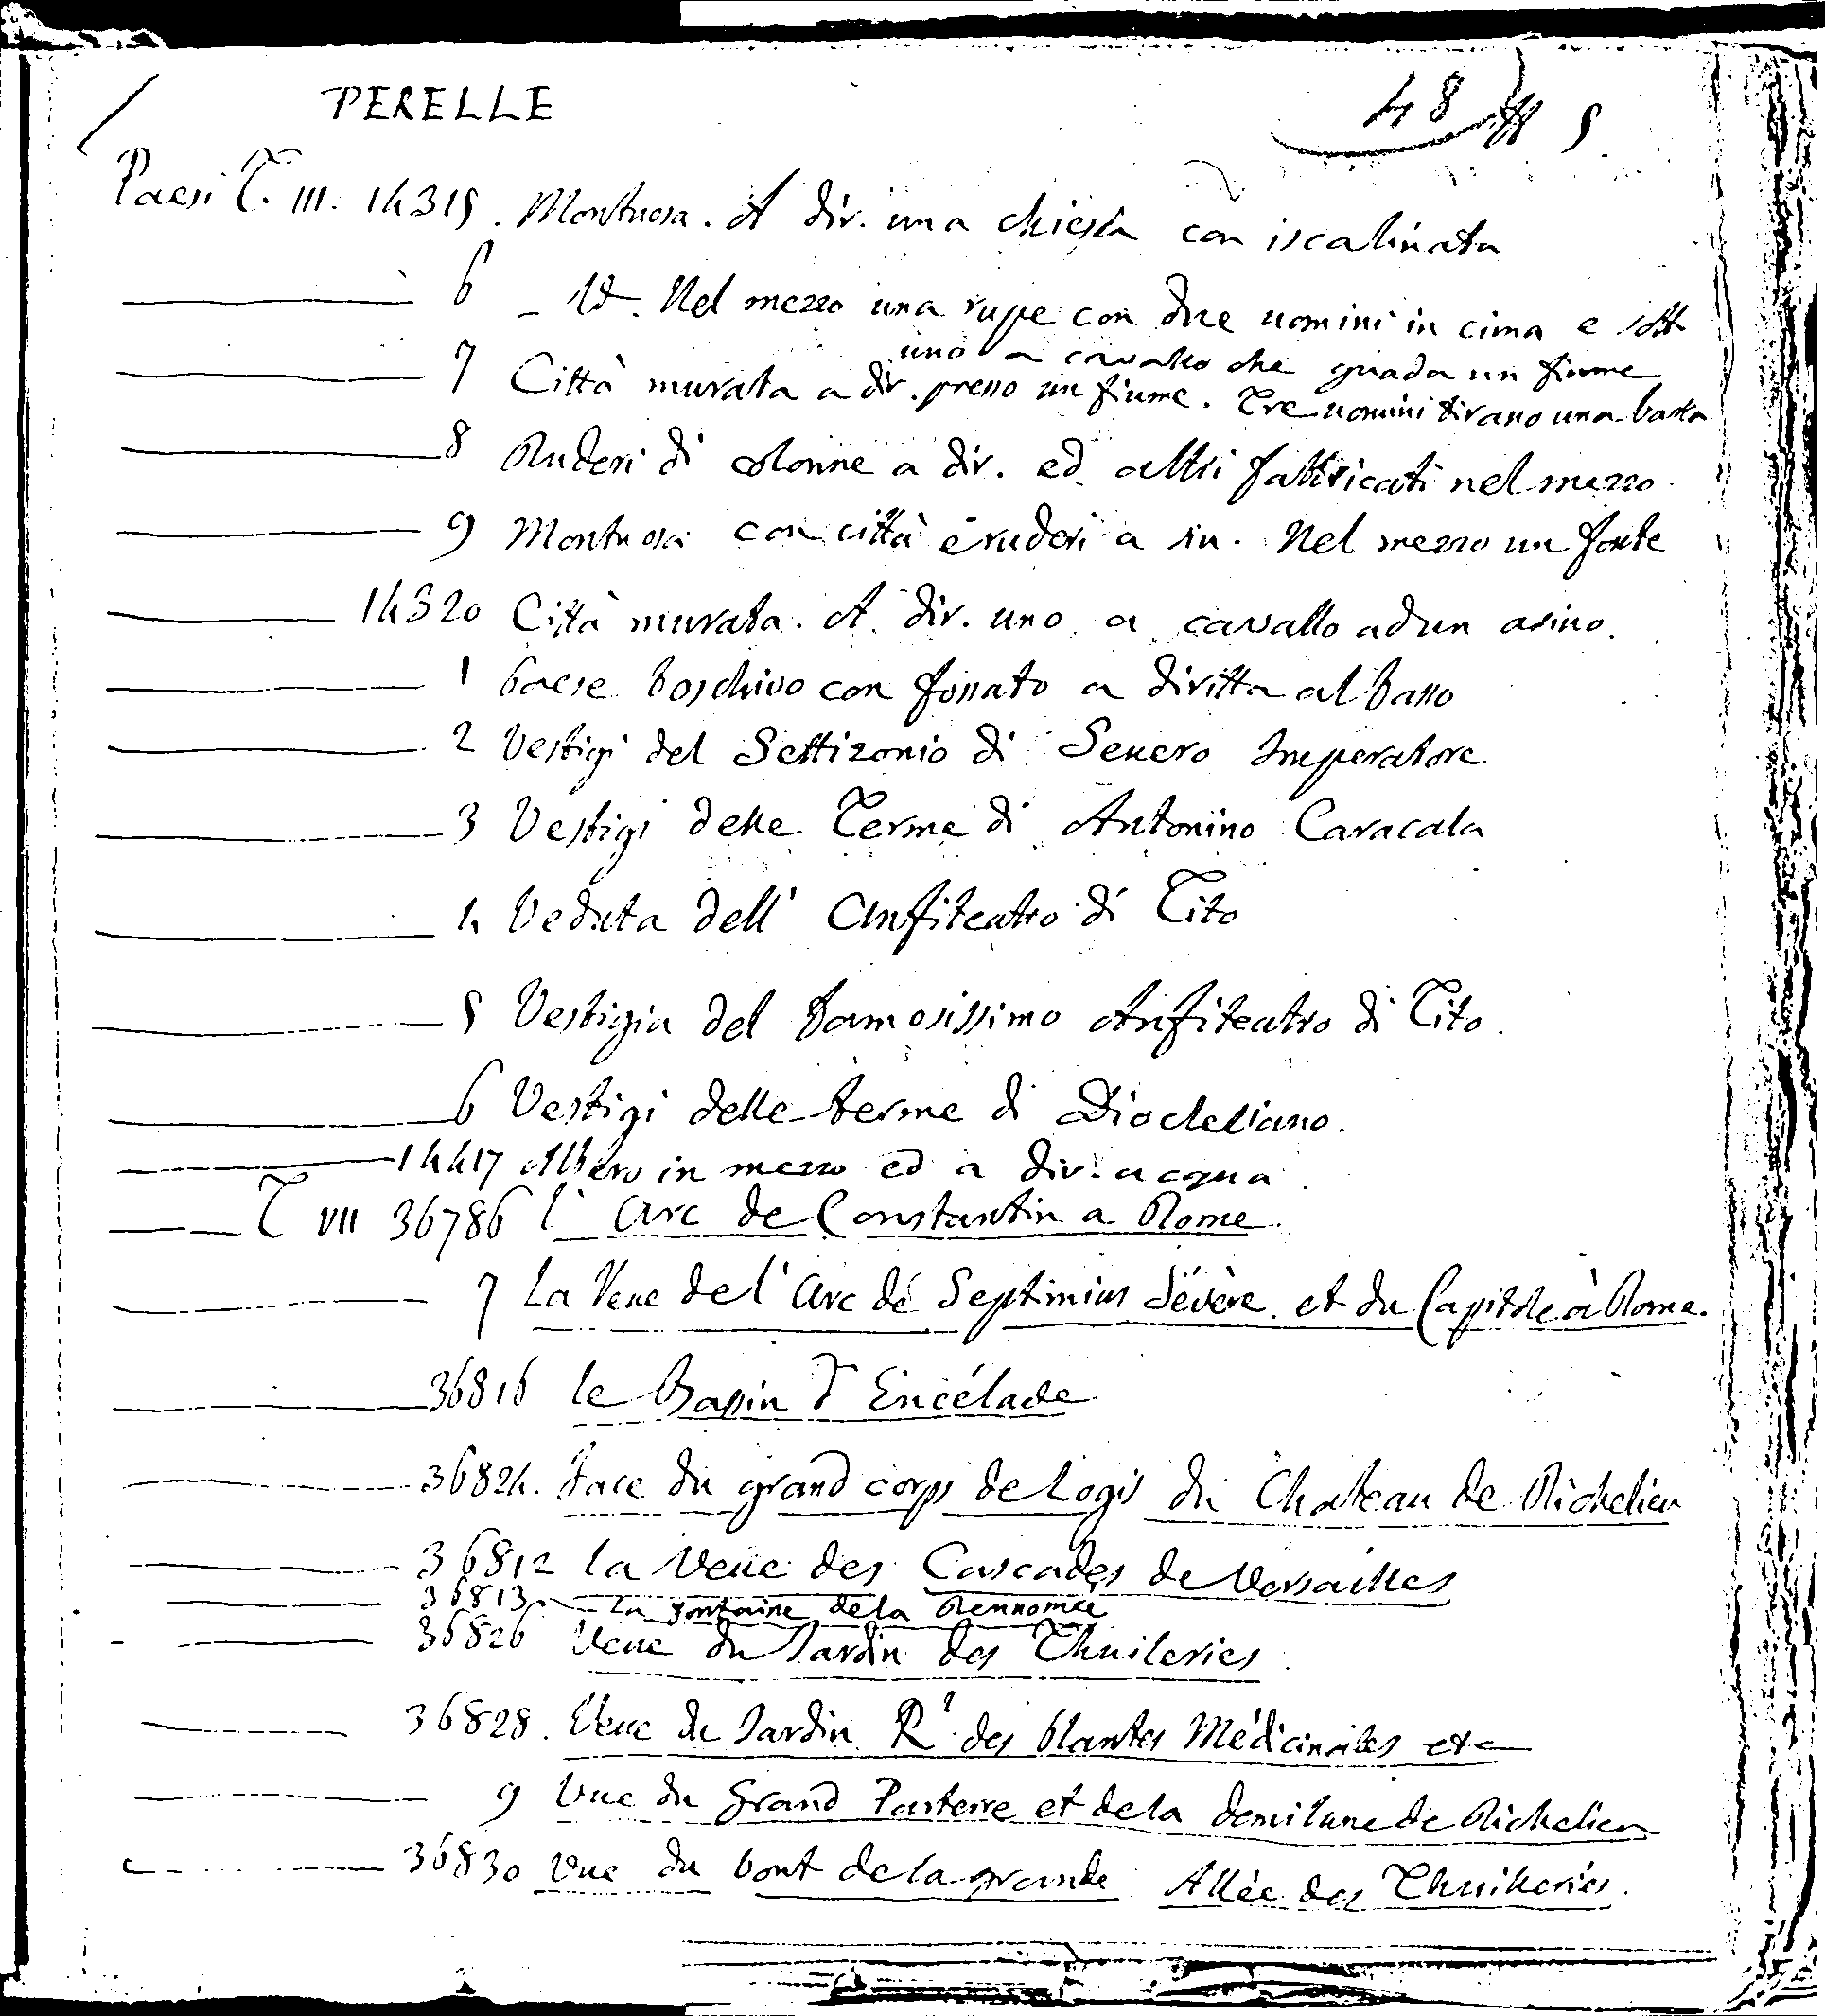 PERELLE
48 5
Paesi T. III. 14315. Montuosa. A dir. una chiesa con iscalinata
6 - Id. Nel mezzo una rupe con due uomini in cima e sott
uno a cavallo che guada un fiume
7 Città murata a dir. presso un fiume. Tre uomini tirano una barca
8 Ruderi di colonne a dir. ed altri fabbricati nel mezzo
9 Montuosa con città e ruderi a sin. Nel mezzo un fonte
14320 Città murata. A dir. uno a cavallo ad un asino.
1 Paese boschivo con fossato a diritta al basso
2 Vestigi del Settizonio di Severo Imperatore
3 Vestigi delle Terme di Antonino Caracala
4 Veduta dell' Anfiteatro di Tito
5 Vestigia del famosissimo Anfiteatro di Tito.
6 Vestigi delle terme di Diocleziano.
14417 Albero in mezzo ed a dir. acqua
T VII 36786 l' Arc de Constantin a Rome.
7 La Veue de l' Arc de Septimius Sévère et du Capitole à Rome.
36816 le Bassin d' Encélade
36824. Face du grand corps de Logis du Chateau de Richelieu
36812 la Veue des Cascades de Versailles
36813 la fontaine de la Rennomée
36826 Veue du Jardin des Thuileries
36828. Veue du Jardin R.l des Plantes Médicinales etc
9 Vue du Grand Parterre et de la demilune de Richelieu
36830 Vue du bout de la grande Allée des Thuilleries.